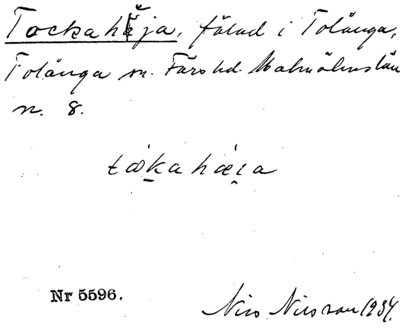 Tockahäja, fälad i Tolånga,
Tolånga sn. Färs hd. Malmöhus län
n. 8.
tåkahæi̯a
Nr 5596.
Nils Nilsson 1934.